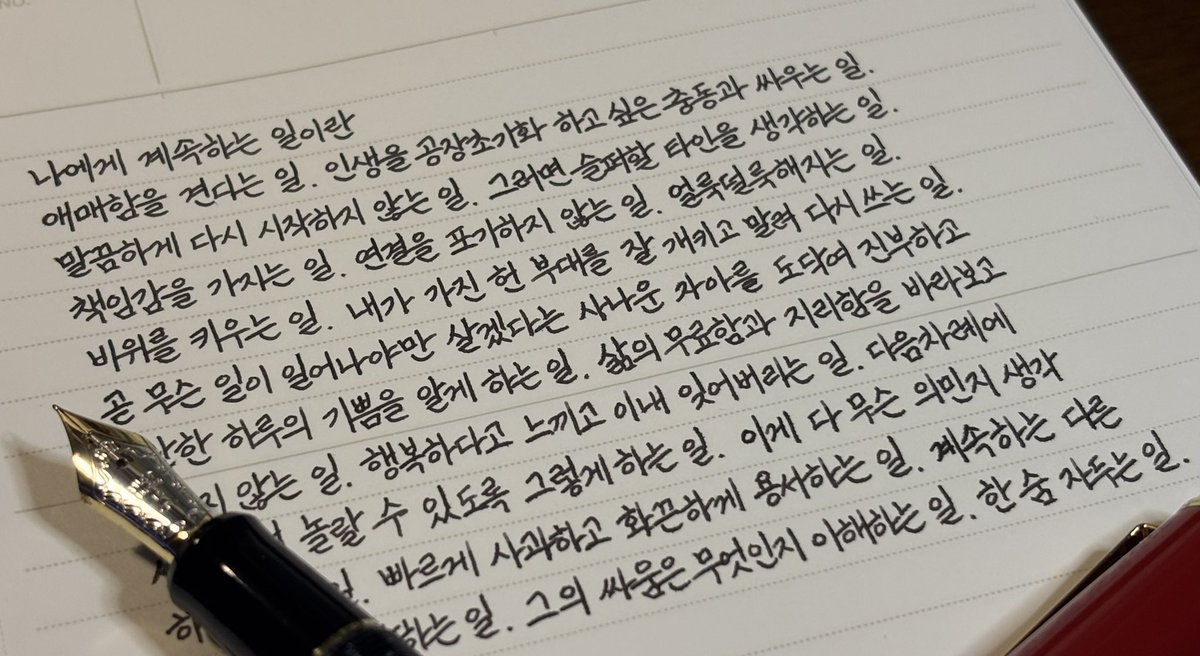 NO.
나에게 계속하는 일이란
애매함을 견디는 일. 인생을 공장초기화 하고 싶은 충동과 싸우는 일.
말끔하게 다시 시작하지 않는 일. 그러면 슬퍼할 타인을 생각하는 일.
책임감을 가지는 일. 연결을 포기하지 않는 일. 얼룩덜룩해지는 일.
비위를 키우는 일. 내가 가진 헌 부대를 잘 개키고 말려 다시 쓰는 일.
곧 무슨 일이 일어나야만 살겠다는 사나운 자아를 도닥여 진부하고
하루의 기쁨을 알게 하는 일. 삶의 무료함과 지리함을 바라보고
않는 일. 행복하다고 느끼고 이내 잊어버리는 일. 다음차례에
놀랄 수 있도록 그렇게 하는 일. 이게 다 무슨 의민지 생각
일. 빠르게 사과하고 화끈하게 용서하는 일. 계속하는 다른
하는 일. 그의 싸움은 무엇인지 이해하는 일. 한 숨 자두는 일.